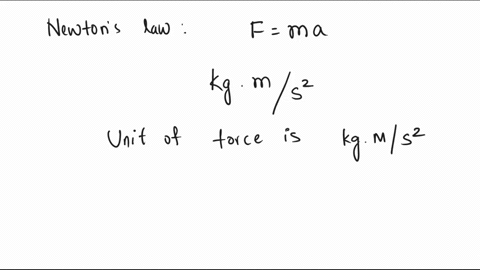 Newton's law : F = ma
kg . m / s²
Unit of force is kg. m/s²